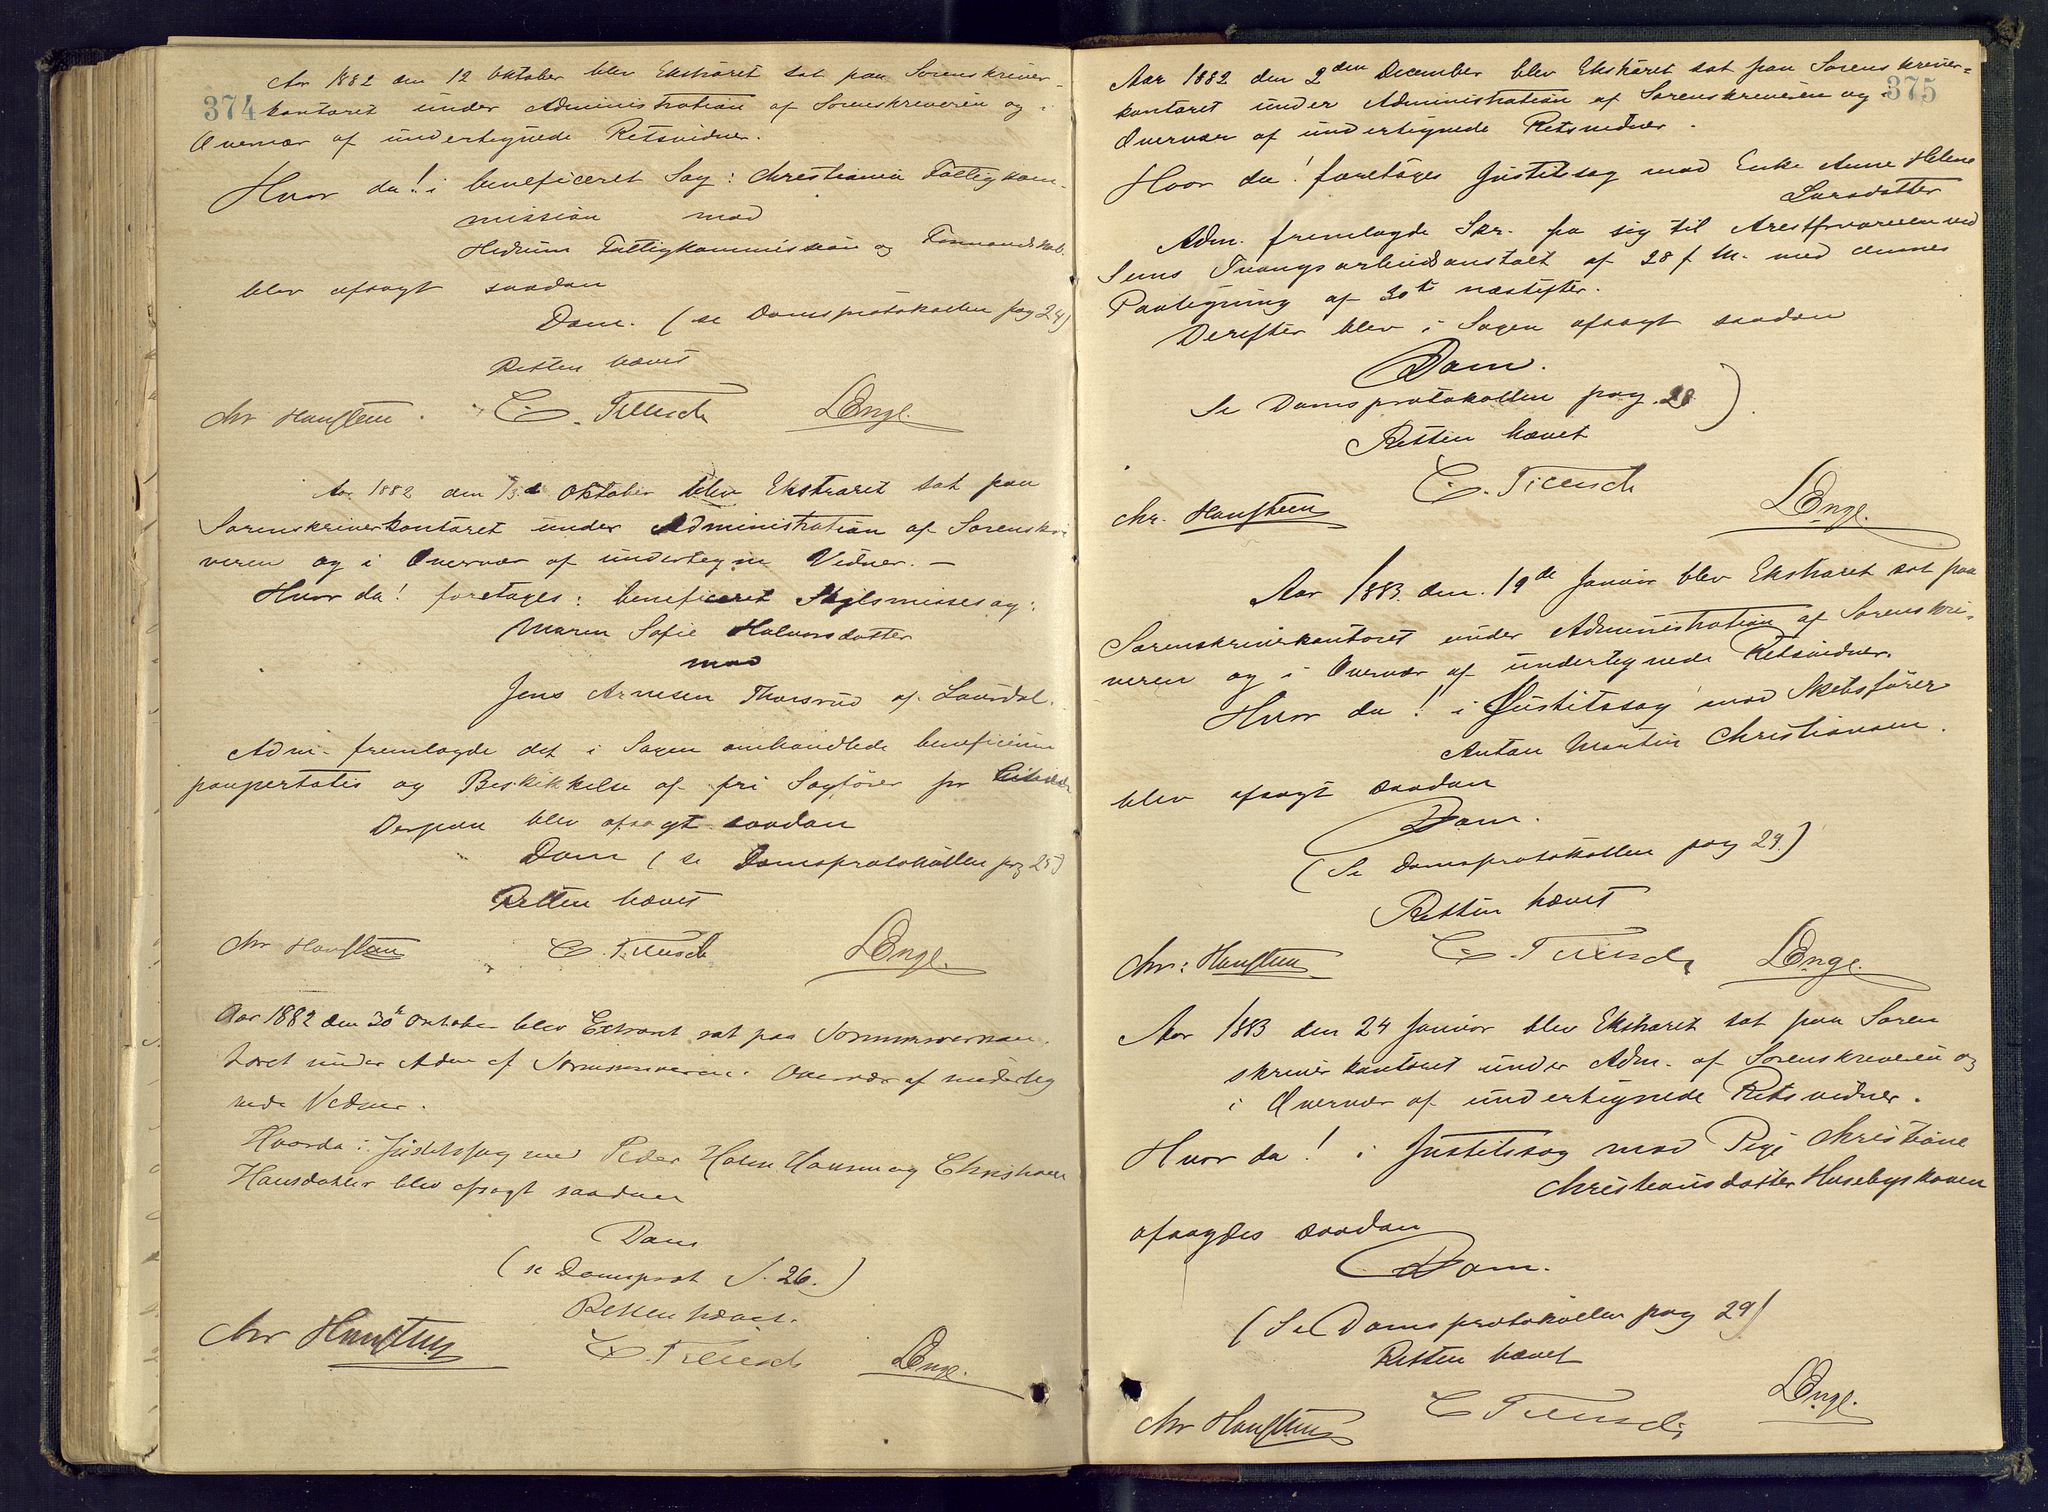 374
Aar 1882 den 12 Oktober blev Ekstraret sat paa Sorenskriver-
kontoret under Administration af Sorenskriveren og i
Overvær af undertegnede Retsvidner.
Hvor da! i beneficeret Sag: Christiania Fattigkom-
mission mod
Hedrum Fattigkommission og Formandskab.
blev afsagt saadan
Dom. (se Domsprotokollen pag 24)
Retten hævet
Chr Hansteen. C. Treusch LEnge.
Aar 1882 den 13de Oktober blev Ekstraret sat paa
Sorenskriverkontoret under Administration af Sorenskri-
veren og i Overvær af undertegne Vidner. –
Hvor da! foretages: beneficeret Skilsmissesag:
Maren Sofie Halvorsdatter
mod
Jens Arnesen Thorsrud af Laurdal.
Adm. fremlagde det i Sagen omhandlede beneficium
paupertatis og Beskikkelse af fri Sagfører for
Derpaa blev afsagt saadan
Dom (se Domsprotokollen pag 25)
Retten hævet
Chr Hansteen C. Treusch LEnge.
Aar 1882 den 30te Oktober blev Extraret sat paa Sorenskriverkon-
toret under Adm af Sorenskriveren i Overvær af underteg
nede Vidner.
Hvorda i Justitssag mod Peder Holm Hansen og Christiane
Hansdatter blev afsagt saadan
Dom
(se Domsprot S. 26.)
Retten hævet.
Chr Hansteen C. Treusch LEnge.
375
Aar 1882 den 2den December blev Ekstraret sat paa Sorenskriver=
kontoret under Administration af Sorenskriveren og
Overvær af undertegnede Retsvidner.
Hvor da! foretages Justitssag mod Enke Anne Helene
Larsdatter
Adm. fremlagde Skr. fra sig til Arestforvareren ved
Sems Tvangsarbeidsanstalt af 28 f. M. med dennes
Paategning af 30te næstefter.
Derefter blev i Sagen afsagt saadan
Dom.
Se Domsprotokollen pag. 28)
Retten hævet
Chr. Hansteen C. Treusch LEnge.
Aar 1883 den 19de Januar blev Ekstraret sat paa
Sorenskriverkontoret under Administration af Sorenskri-
veren og i Overvær af undertegnede Retsvidner.
Hvor da! i Justitssag mod Skibsfører
Anton Martin Christiansen.
blev afsagt saadan
Dom.
(Se Domsprotokollen pag 29.)
Retten hævet
Chr: Hansteen C. Treusch LEnge.
Aar 1883 den 24 Januar blev Ekstraret sat paa Soren
skriverkontoret under Adm. af Sorenskriveren og
i Overvær af undertegnede Retsvidner.
Hvor da! i Justitssag mod Pige Christiane
Christiansdatter Husebyskoven
afsagdes saadan
Dom.
(Se Domsprotokollen pag 29)
Retten hævet
Chr Hansteen C Treusch LEnge.